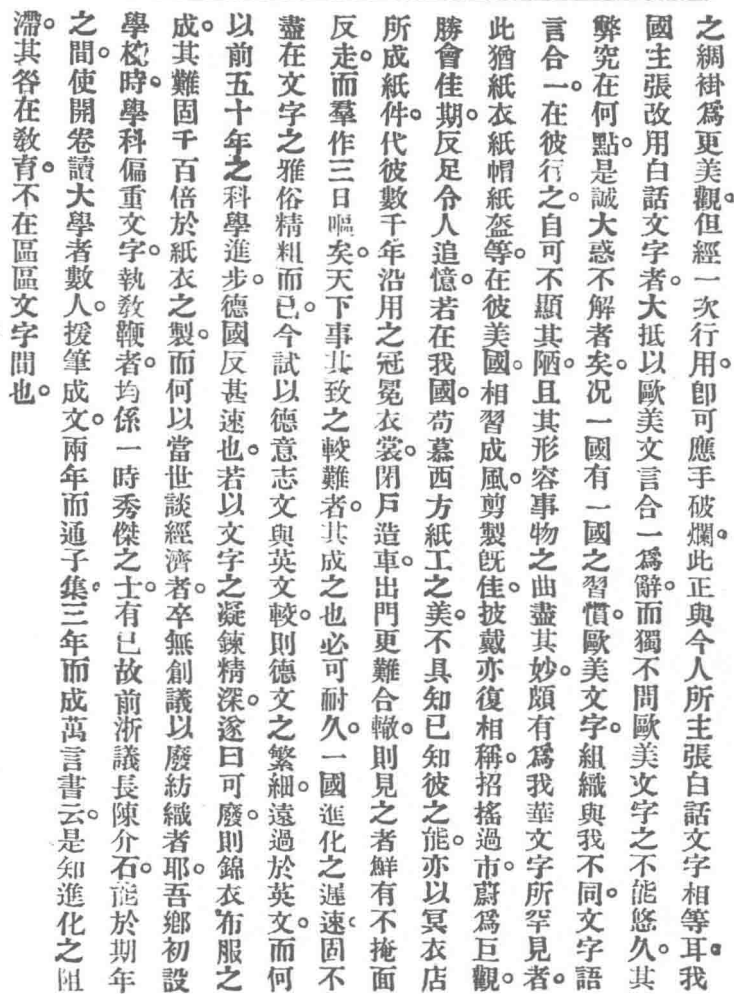 之綢褂爲更美觀。但經一次行用。卽可應手破爛。此正與今人所主張白話文字相等耳。我
國主張改用白話文字者。大抵以歐美文言合一爲辭。而獨不問歐美文字之不能悠久。其
弊究在何點。是誠大惑不解者矣。况一國有一國之習慣。歐美文字。組織與我不同。文字語
言合一。在彼行之。自可不顯其陋。且其形容事物之曲盡其妙。頗有爲我華文字所罕見者。
此猶紙衣紙帽紙盔等。在彼美國。相習成風。剪製旣佳。披戴亦復相稱。招搖過市。蔚爲巨觀。
勝會佳期。反足令人追憶。若在我國。苟慕西方紙工之美。不具知已知彼之能。亦以冥衣店
所成紙件。代彼數千年沿用之冠冕衣裳。閉戶造車。出門更難合轍。則見之者鮮有不掩面
反走。而羣作三日嘔矣。天下事其致之較難者。其成之也必可耐久。一國進化之遲速。固不
盡在文字之雅俗精粗而已。今試以德意志文與英文較。則德文之繁細。遠過於英文。而何
以前五十年之科學進步。德國反甚速也。若以文字之凝鍊精深。遂曰可廢。則錦衣布服之
成。其難固千百倍於紙衣之製。而何以當世談經濟者。卒無創議以廢紡織者耶。吾鄉初設
學校時。學科偏重文字。執敎鞭者。均係一時秀傑之士。有已故前浙議長陳介石。能於期年
之間。使開卷讀大學者數人。援筆成文。兩年而通子集。三年而成萬言書云。是知進化之阻
滯。其咎在敎育。不在區區文字間也。